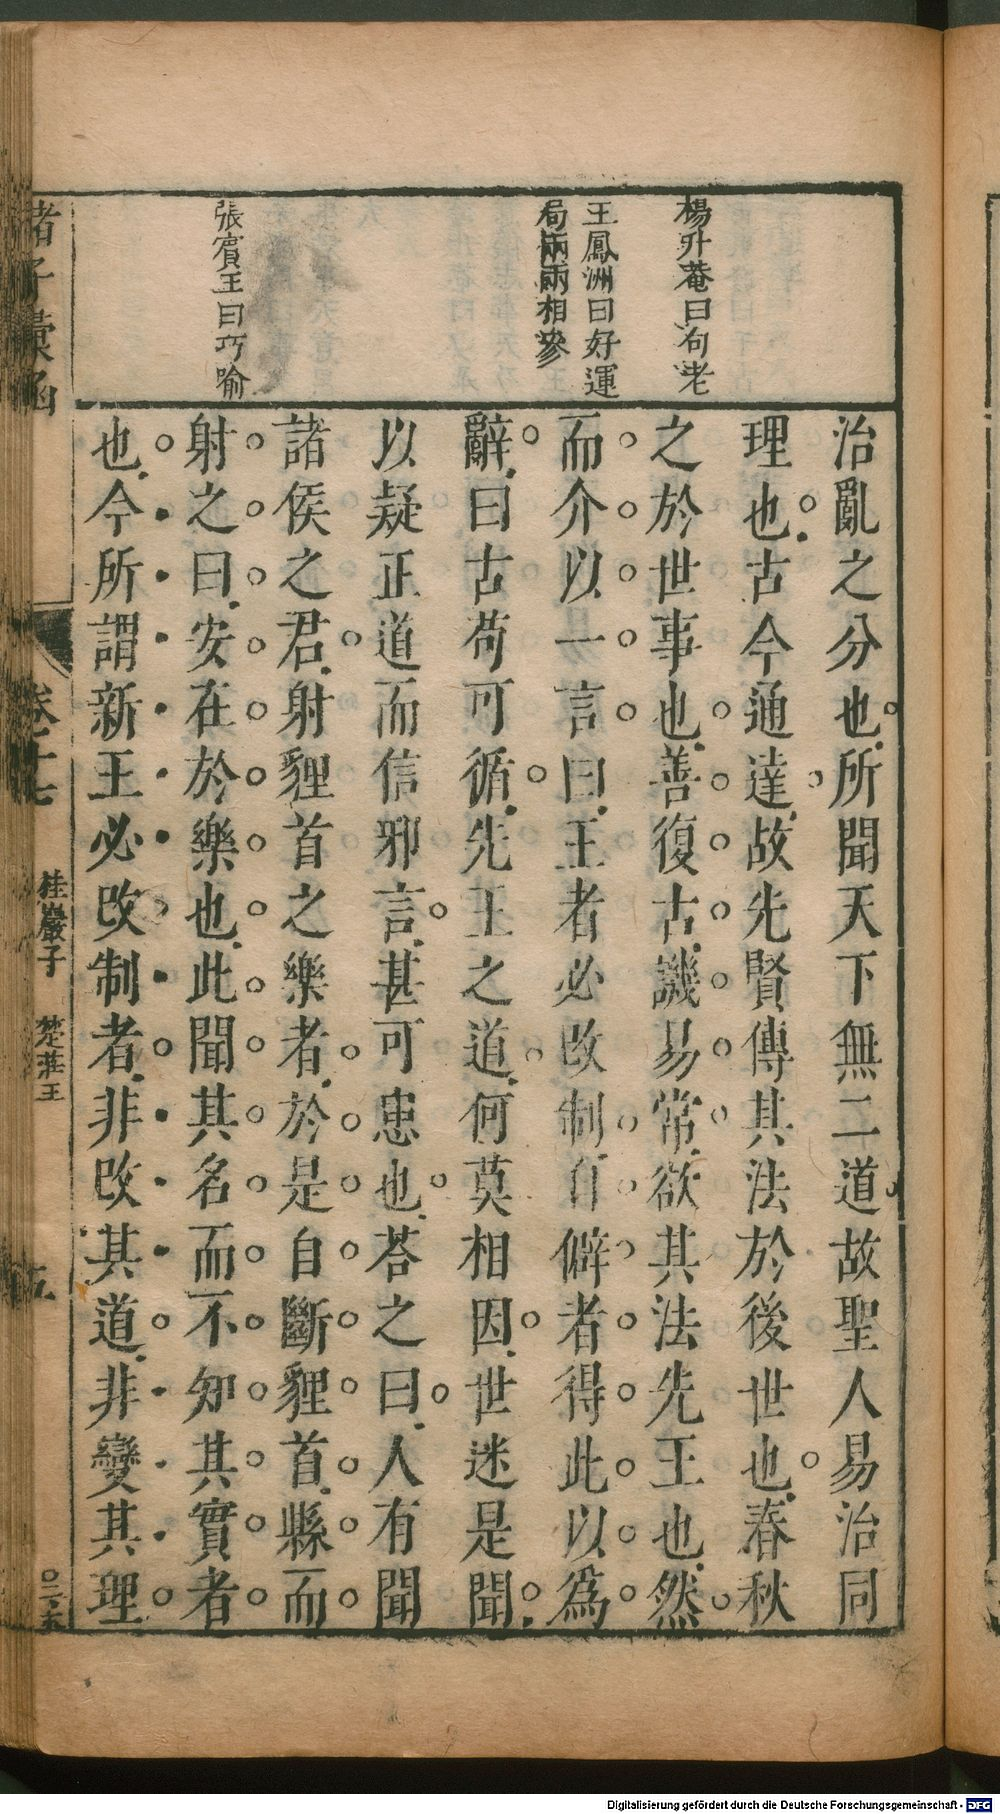 楊升菴曰句老
王鳳洲曰好運
局兩兩相參
張賓王曰巧喻
治亂之分也所聞天下無二道故聖人易治同
理也古今通達故先賢傳其法於後世也春秋
之於世事也善復古譏易常欲其法先王也然
而介以一言曰王者必改制自僻者得此以爲
辭曰古苟可循先王之道何莫相因世迷是聞
以疑正道而信邪言甚可患也荅之曰人有聞
諸侯之君射貍首之樂者於是自斷貍首縣而
射之曰安在於樂也此聞其名而不知其實者
也今所謂新王必改制者非改其道非變其理
諸子彙函
卷十七
桂巖子 楚莊王
五
Digitalisierung gefördert durch die Deutsche Forschungsgemeinschaft - DFG